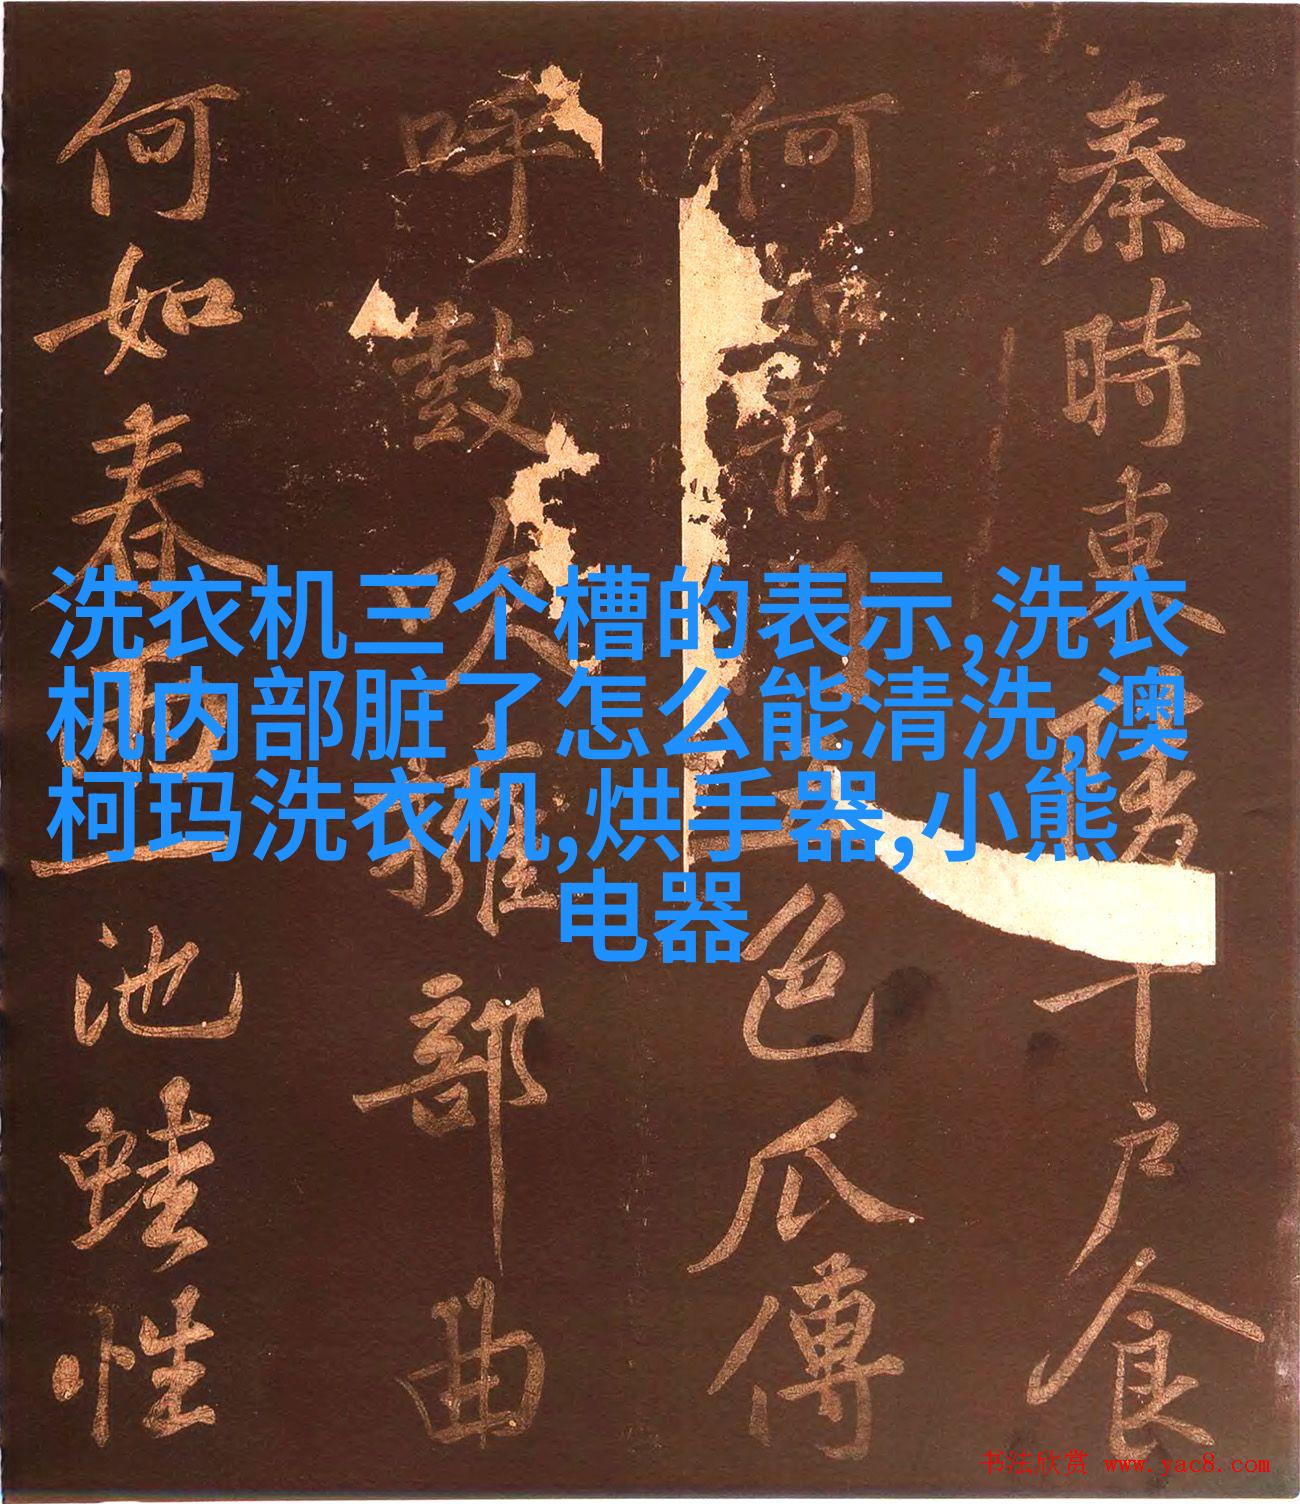 洗衣机三个槽的表示,洗衣
机内部脏了怎么能清洗,澳
柯玛洗衣机,烘手器,小熊
电器
秦時東陵千户食
何如青門五色瓜傳
呼鼓吹擁部曲
何如春雨池蛙性
书法欣赏 www.yac8.com